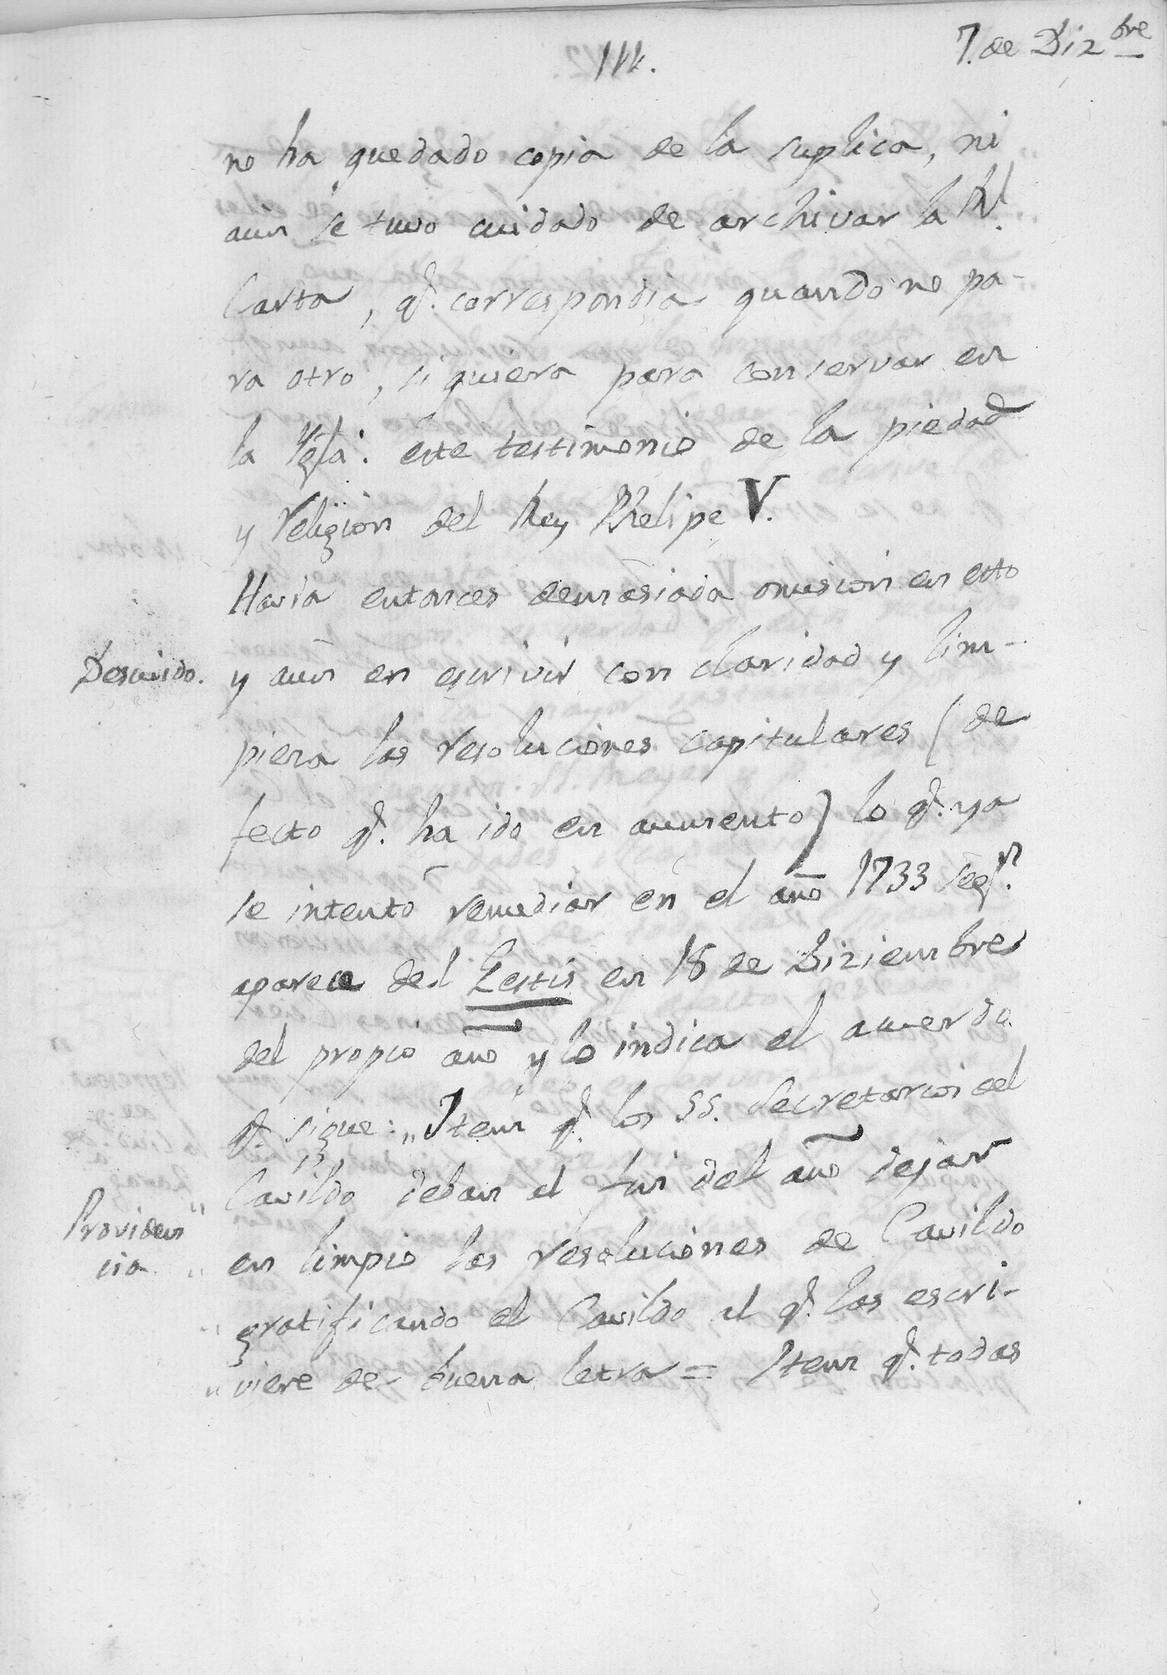 7. de Diz.bre
111.
no ha quedado copia de la suplica, ni
aun se tuvo cuidado de archivar la Rl.
Carta, q.e correspondia quando no pa-
ra otro, siquiera para conservar en
la Ygla. este testimonio de la piedad
y Religion del Rey Phelipe V.
Havia entonces demasiada omision en esto
Descuido.
y aun en escrivir con claridad y lim-
pieza las resoluciones capitulares (de
fecto q.e ha ido en aumento) lo q.e ya
se intentó remediar en el año 1733 seg.n
aparece del Gestis en 18 de Diziembre
del propio año y lo indica el acuerdo
q.e sigue: „Item q.e los SS. Secretarios del
Cavildo deban al fin del año dejar
Providen
cia
„ en limpio las resoluciones de Cavildo
„ gratificando el Cavildo al q.e las escri-
„ viere de buena letra = Item q.e todas